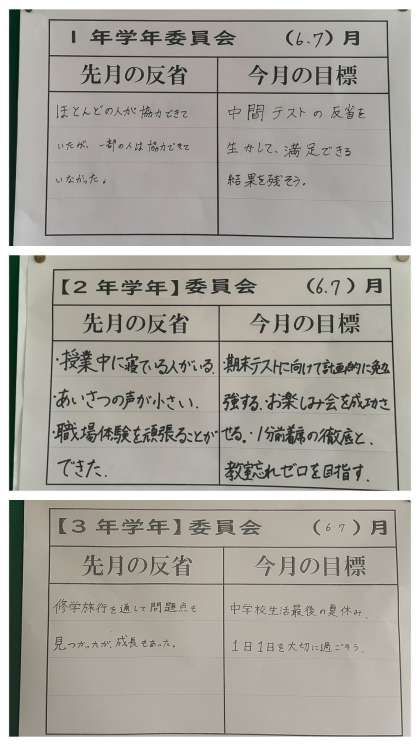 1年学年委員会 （6.7）月
先月の反省 今月の目標
ほとんどの人が協力できて
いたが、一部の人は協力できて
いなかった。
中間テストの反省を
生かして、満足できる
結果を残そう。
【2年学年】委員会 （6.7）月
先月の反省 今月の目標
・授業中に寝ている人がいる。
・あいさつの声が小さい。
・職場体験を頑張ることが
できた。
・期末テストに向けて計画的に勉
強する。・お楽しみ会を成功さ
せる。・1分前着席の徹底と、
教室忘れゼロを目指す。
【3年学年】委員会 （6 7）月
先月の反省 今月の目標
修学旅行を通して問題点も
見つかったが、成長もあった。
中学校生活最後の夏休み、
1日1日を大切に過ごそう。